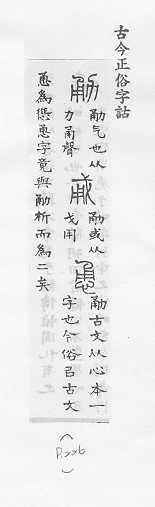 古今正俗字詁
勈
勈气也从
力甬聲
勈或从
戈用
恿
勈古文从心本一
字也今俗㠯古文
恿為慫恿字竟與勈析而為二矣
(P.226)